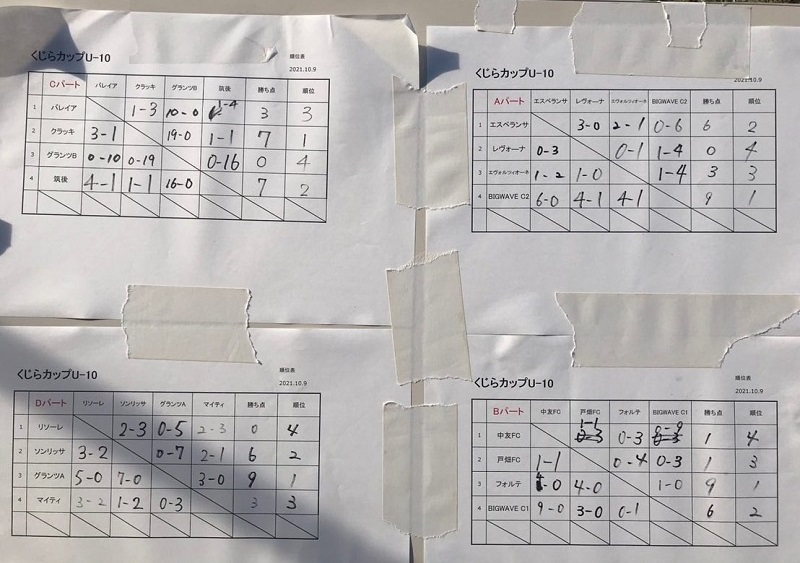 くじらカップU-10
順位表
2021.10.9
Cパート バレイア クラッキ グランツB 筑後 勝ち点 順位
1 バレイア 1-3 10-0 1-4 3 3
2 クラッキ 3-1 19-0 1-1 7 1
3 グランツB 0-10 0-19 0-16 0 4
4 筑後 4-1 1-1 16-0 7 2
くじらカップU-10
順位表
2021.10.9
Aパート エスペランサ レヴォーナ エヴォルツィオーネ BIGWAVE C2 勝ち点 順位
1 エスペランサ 3-0 2-1 0-6 6 2
2 レヴォーナ 0-3 0-1 1-4 0 4
3 エヴォルツィオーネ 1-2 1-0 1-4 3 3
4 BIGWAVE C2 6-0 4-1 4-1 9 1
くじらカップU-10
順位表
2021.10.9
Dパート リソーレ ソンリッサ グランツA マイティ 勝ち点 順位
1 リソーレ 2-3 0-5 2-3 0 4
2 ソンリッサ 3-2 0-7 2-1 6 2
3 グランツA 5-0 7-0 3-0 9 1
4 マイティ 3-2 1-2 0-3 3 3
くじらカップU-10
順位表
2021.10.9
Bパート 中友FC 戸畑FC フォルテ BIGWAVE C1 勝ち点 順位
1 中友FC 1-1 0-3 0-9 1 4
2 戸畑FC 1-1 0-4 0-3 1 3
3 フォルテ -0 4-0 1-0 9 1
4 BIGWAVE C1 9-0 3-0 0-1 6 2